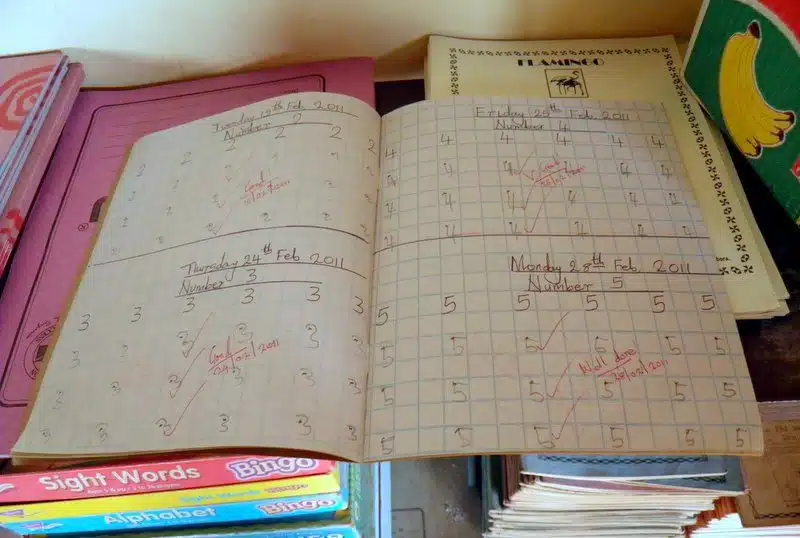 Tuesday Feb 2011
Number 2
2 2 2 2 2 2
2 2 2 2 2 2
Good
2 2 2 2 2 2
2 2 2 2 2 2
Thursday 24th Feb 2011
Number 3
3 3 3 3 3 3
3 3 3 3 3 3
Good
24/02/2011
3 3 3 3 3 3
3 3 3 3 3 3
Friday 25th Feb 2011
Number 4
4 4 4 4 4 4
4 4 4 4 4 4
Good
25/02/2011
4 4 4 4 4 4
4 4 4 4 4 4
Monday 28th Feb. 2011
Number 5
5 5 5 5 5 5
5 5 5 5 5 5
Well done
28/02/2011
5 5 5 5 5 5
5 5 5 5 5 5
FLAMINGO
Sight Words Bingo
Sight Words Bingo
Alphabet Bingo